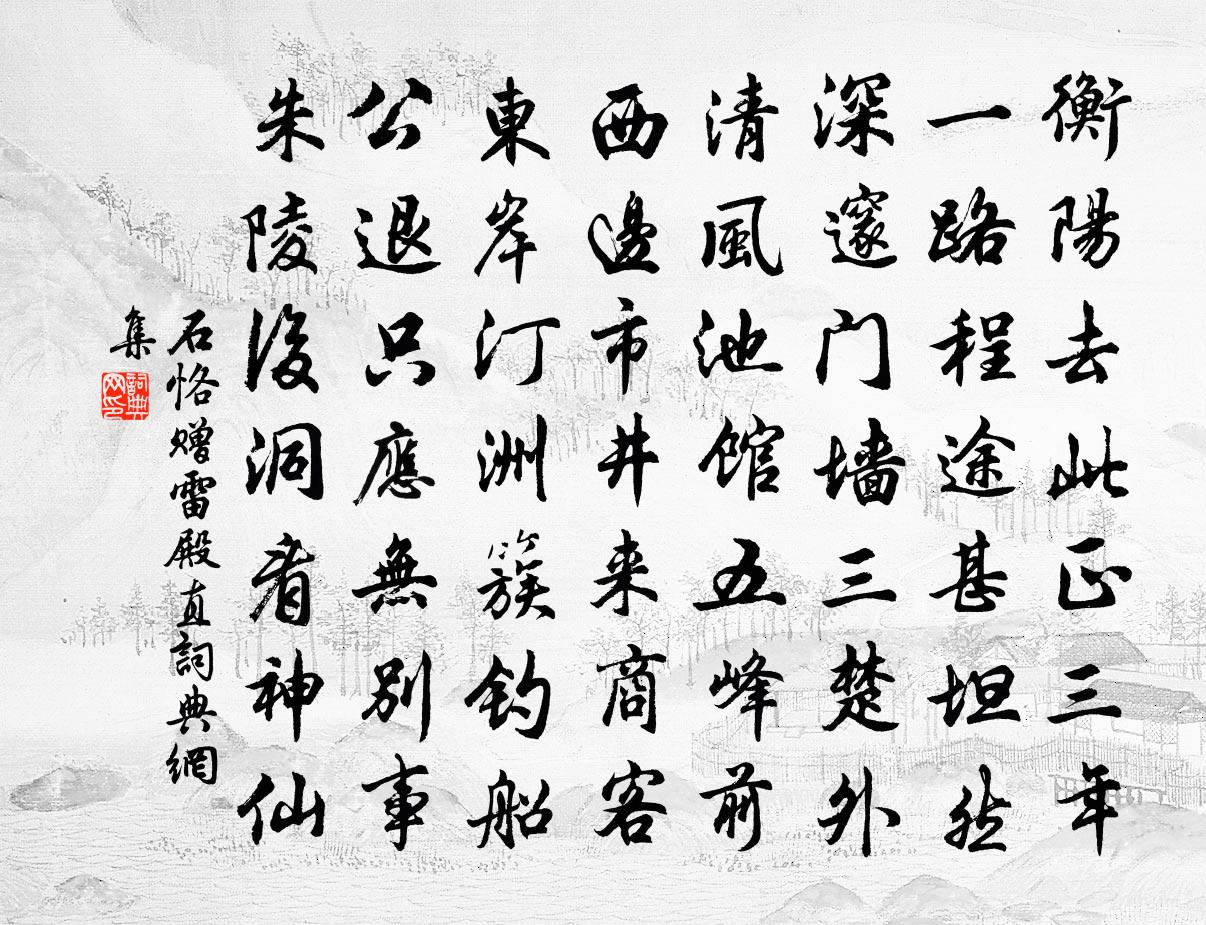 衡陽去此正三年
一路程途甚坦然
深邃门墙三楚外
清風池馆五峰前
西邊市井来商客
東岸汀洲簇钓船
公退只應無别事
朱陵後洞看神仙
石恪赠雷殿直詞典網
集
詞典网印